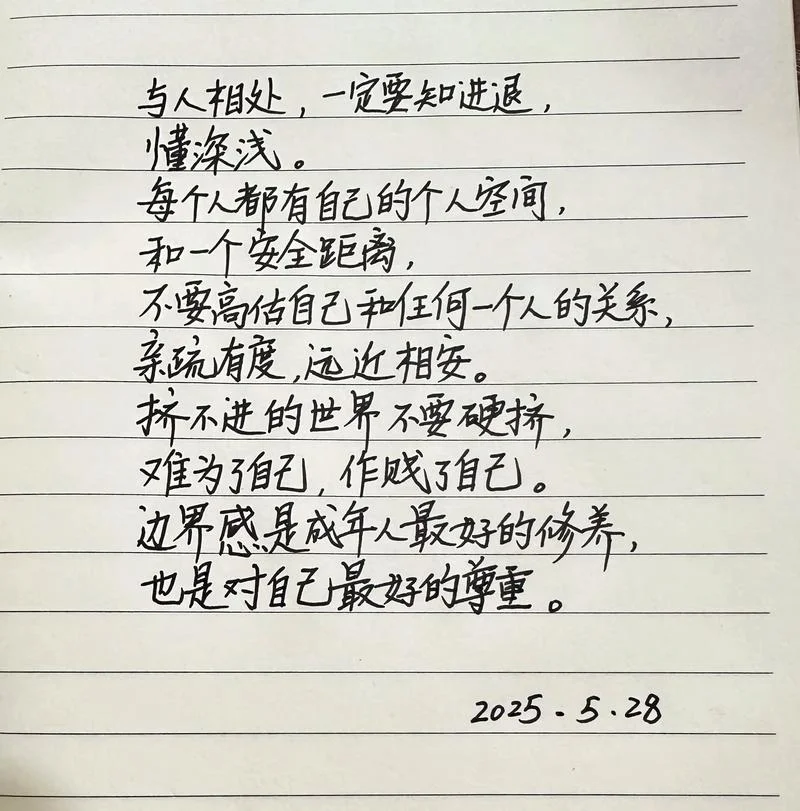 与人相处，一定要知进退，
懂深浅。
每个人都有自己的个人空间，
和一个安全距离，
不要高估自己和任何一个人的关系，
亲疏有度，远近相安。
挤不进的世界不要硬挤，
难为了自己，作贱了自己。
边界感是成年人最好的修养，
也是对自己最好的尊重。
2025.5.28